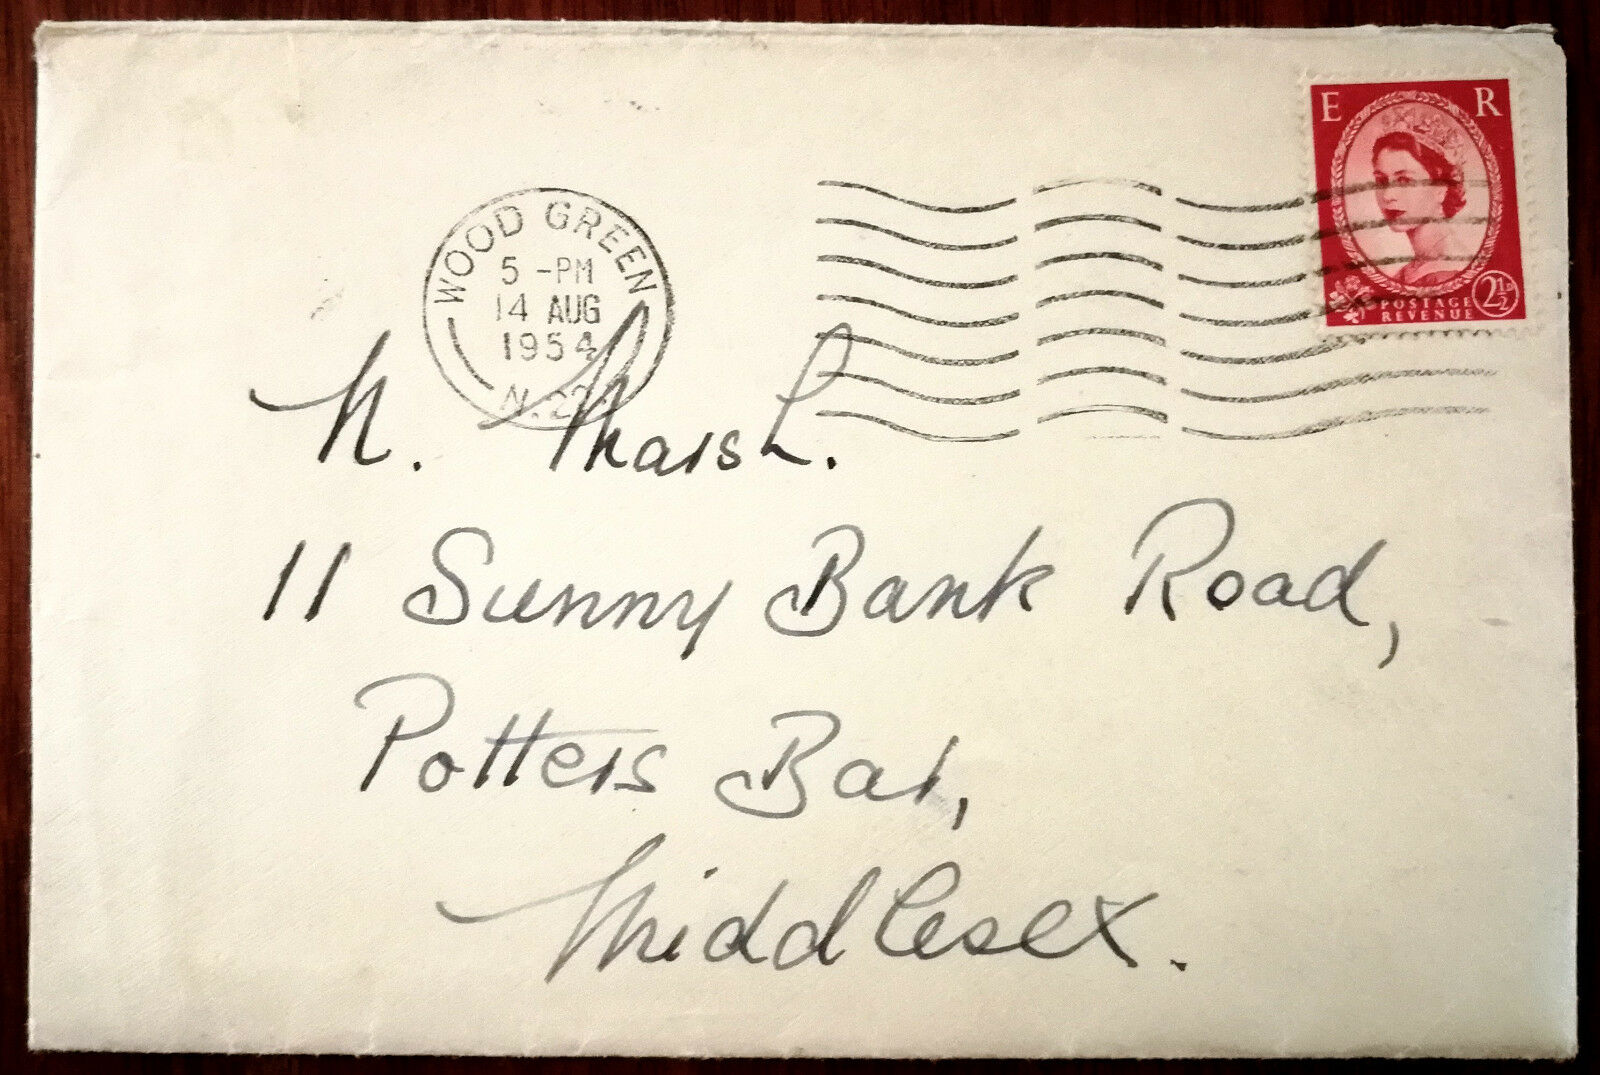 E R
POSTAGE 2½D
REVENUE
WOOD GREEN
5 -PM
14 AUG
1954
N.22
N. Marsh.
11 Sunny Bank Road,
Potters Bar,
Middlesex.